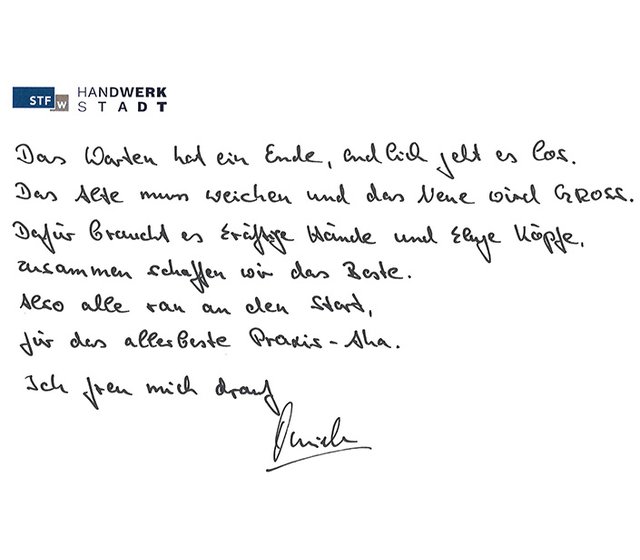 STF W HANDWERK
STADT
Das Warten hat ein Ende, endlich geht es los.
Das Alte muss weichen und das Neue wird GROSS.
Dafür braucht es kräftige Hände und kluge Köpfe,
zusammen schaffen wir das Beste.
Also alle ran an den Start,
für das allerbeste Praxis-Aha.
Ich freu mich drauf